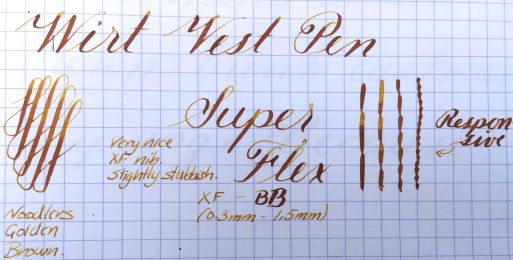 Wirt Vest Pen
Super
Flex
very nice
XF nib.
Slightly stubbish.
XF - BB
(0.3mm - 1.5mm)
Respon
sive
Noodlers
Golden
Brown.